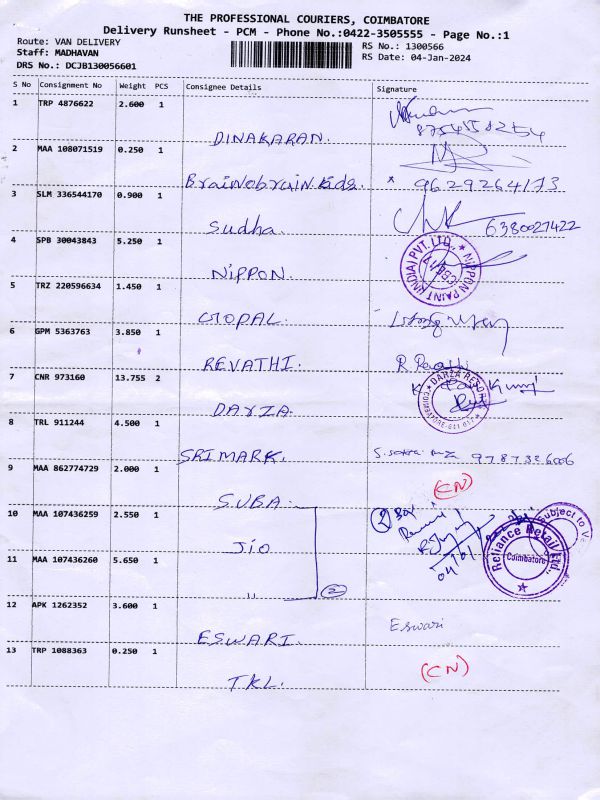 THE PROFESSIONAL COURIERS, COIMBATORE
Delivery Runsheet - PCM - Phone No.:0422-3505555 - Page No.:1
Route: VAN DELIVERY
Staff: MADHAVAN
DRS No.: DCJB130056601
RS No.: 1300566
RS Date: 04-Jan-2024
S No Consignment No Weight PCS Consignee Details Signature
1 TRP 4876622 2.600 1
DINAKARAN. 8754558254
2 MAA 108071519 0.250 1
Brainobrain kids. * 9629264173
3 SLM 336544170 0.900 1
Sudha. 6380027422
4 SPB 30043843 5.250 1
NIPPON. NIPPON PAINT (INDIA) PVT. LTD.,
5 TRZ 220596634 1.450 1
GOPAL.
6 GPM 5363763 3.850 1
REVATHI. R. Revathi
7 CNR 973160 13.755 2
DARZA. DARZA RESORT COIMBATORE-641
8 TRL 911244 4.500 1
SRIMARK. 9787326006
9 MAA 862774729 2.000 1
SUBA. (CN)
10 MAA 107436259 2.550 1
JIO 2 Box
11 MAA 107436260 5.650 1
" 2 04/01 Reliance Retail Ltd. Coimbatore subject to
12 APK 1262352 3.600 1
ESWARI. Eswari
13 TRP 1088363 0.250 1
TKL. (CN)